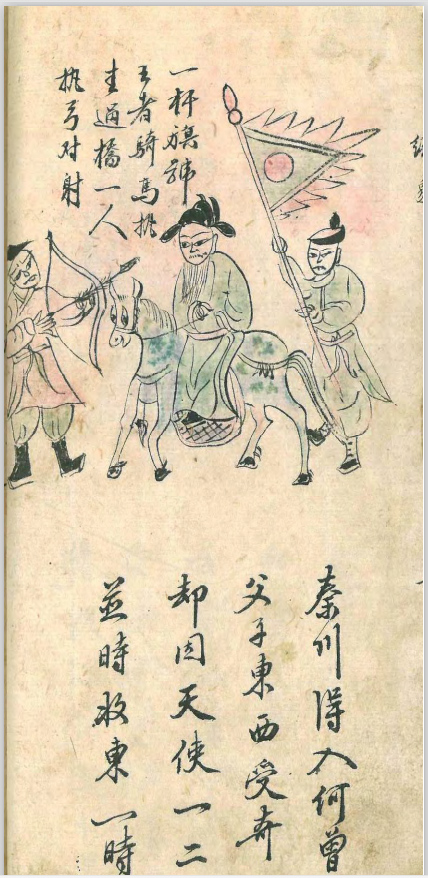 一杆旗號
王者騎馬桃
主過橋一人
执弓对射
秦川得入何曾
父子東西受奔
却因天使一二
並時收東一時